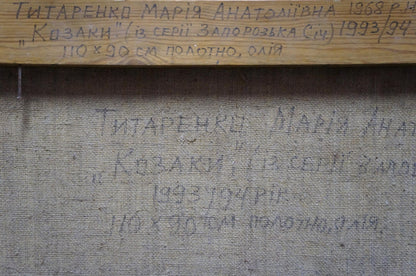 Титаренко Марія Анатоліївна 1968 р.н
„Козаки" (із серії Запорозька Січ) 1993/94
110 х 90 см полотно, олія
Титаренко Марія Анат
„Козаки" (із серії Запо
1993/94 рік
110 х 90 см полотно, олія.